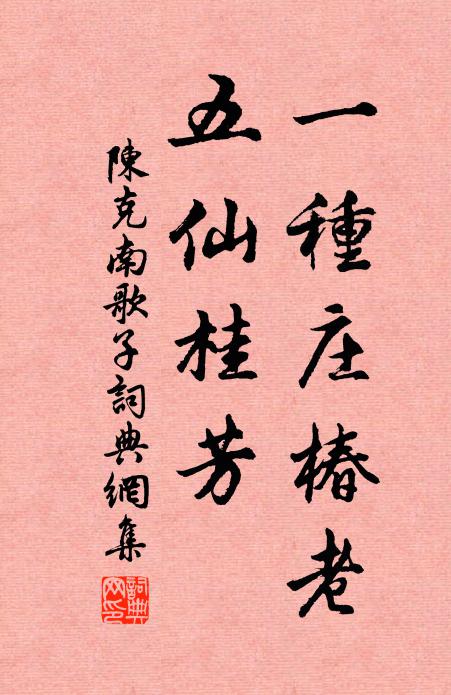 一種庄椿老
五仙桂芳
陳克南歌子詞典網集
詞典网印